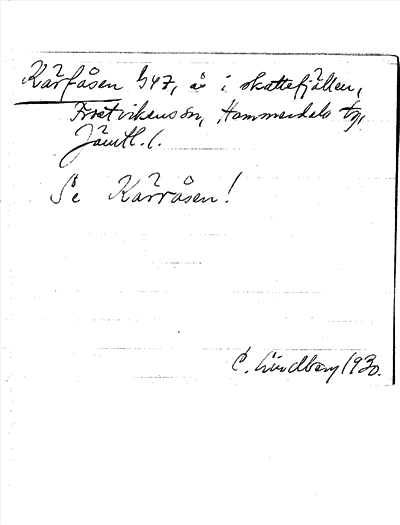 Kårfåsen 547, ås i skattefjällen,
Frostvikens sn, Hammerdals tg,
Jämtl. l.
Se Kårråsen!
C. Lindberg 1930.